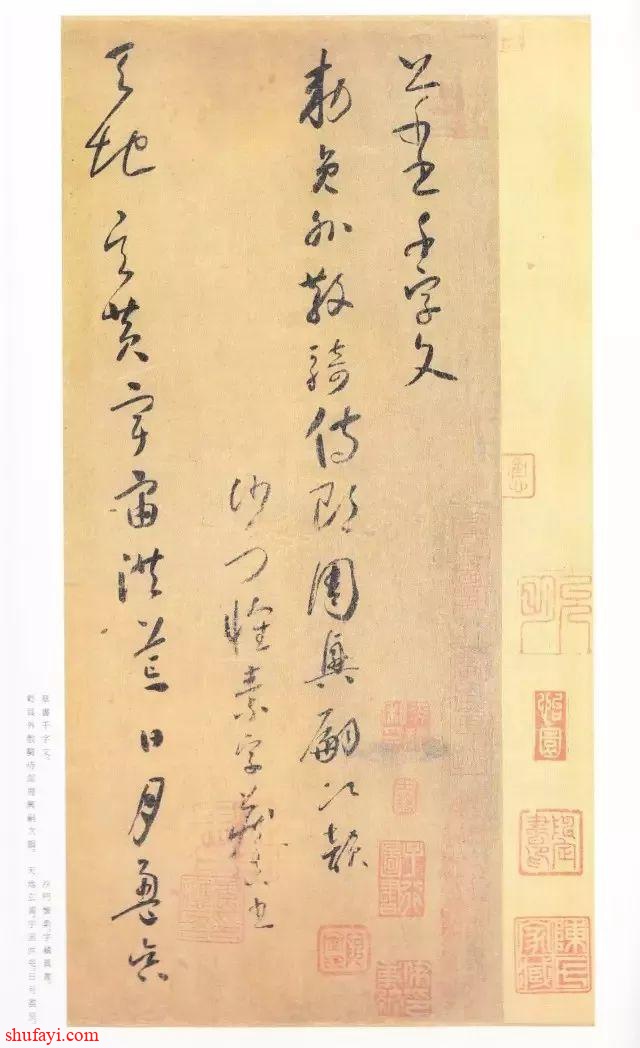 草書千字文
勑員外散騎侍郎周興嗣次韻
沙門懷素字藏真書
天地玄黃宇宙洪荒日月盈昃
草書千字文。 沙門懷素字藏真書。
勑員外散騎侍郎周興嗣次韻。 天地玄黃,宇宙洪荒,日月盈昃,
怡園
陳氏家藏
shufayi.com